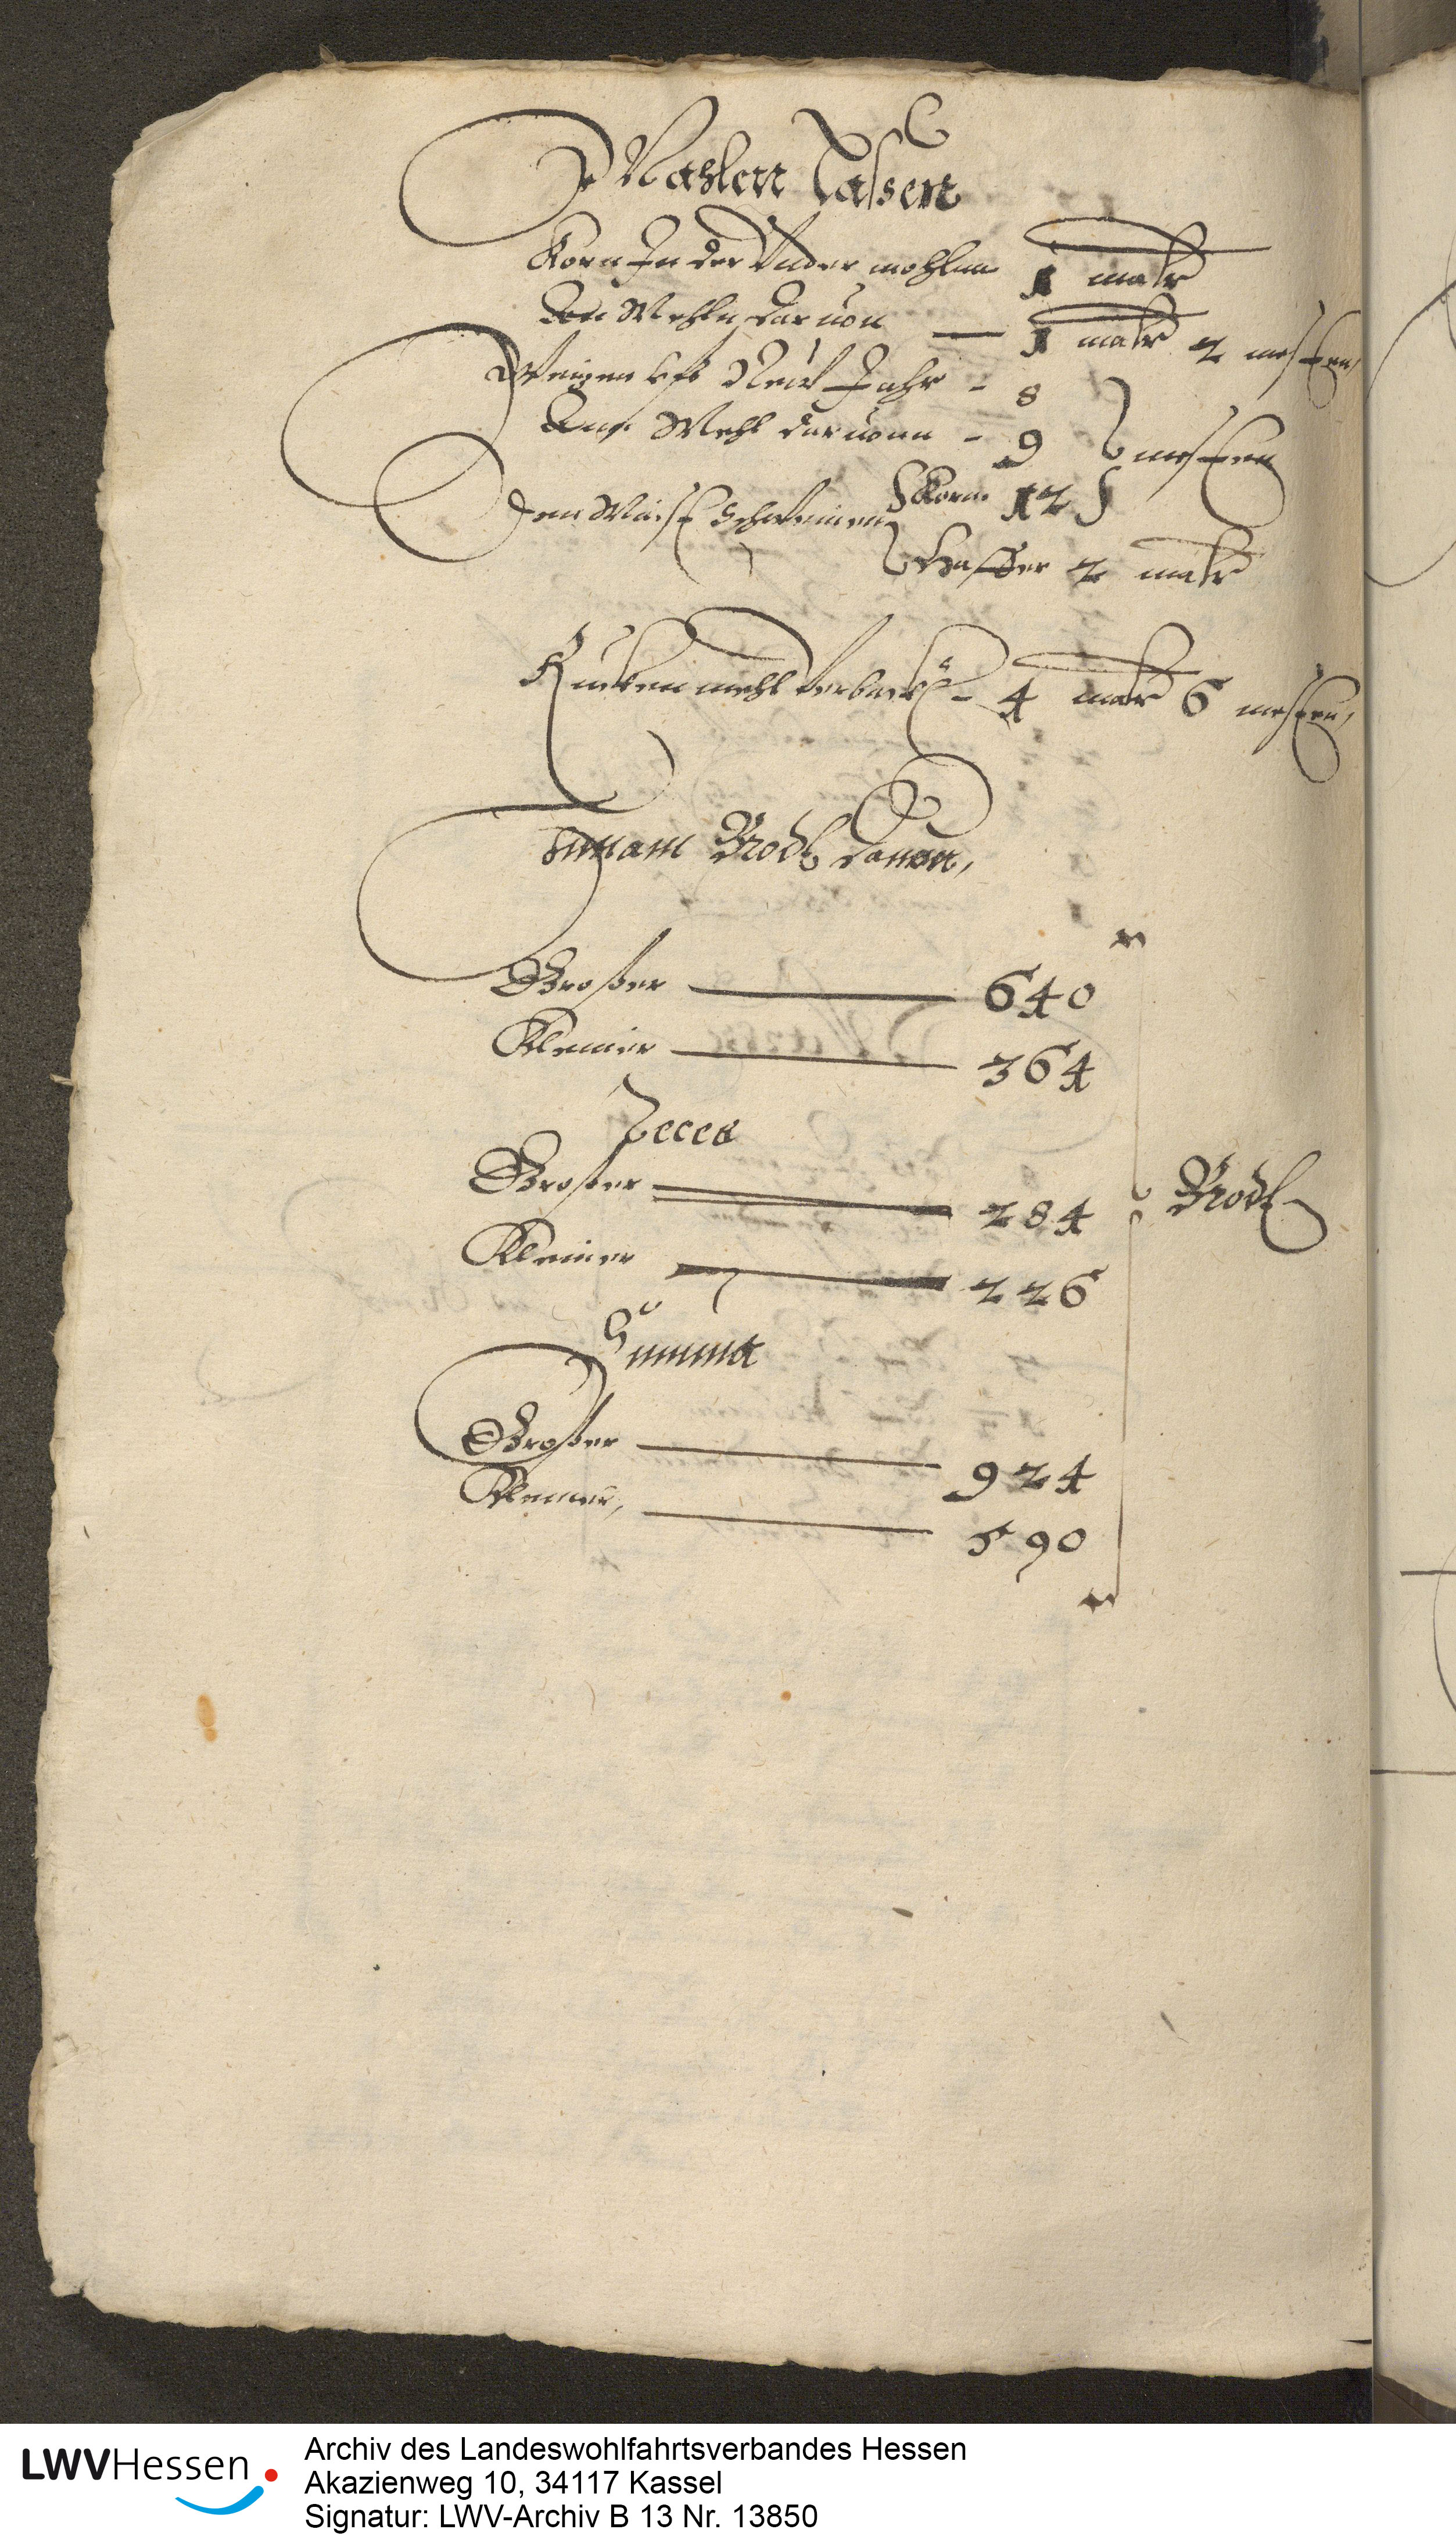 Mahlen Laßen
Korn In der Under mohlen 1 maltr
An Mehln daruon 1 maltr 2 mesten,
Weitzen uff New Jahr - 8
Ann Mehl daruonn - 9 mesten
Den Mast schweinen Korn 12
Haffer 2 maltr
Ruckenmehl verback - 4 maltr 6 mesten,
Innam Brodt dauon,
Großer 640
Kleiner 364
Reces
Großer 284
Kleiner 226
Brodt
Summa
Großer 924
Kleiner, 590
LWVHessen
Archiv des Landeswohlfahrtsverbandes Hessen
Akazienweg 10, 34117 Kassel
Signatur: LWV-Archiv B 13 Nr. 13850